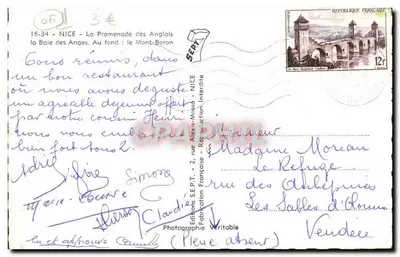 06
3€
16-34 - NICE - La Promenade des Anglais
la Baie des Anges. Au fond : le Mont-Boron
SEPT
REPUBLIQUE FRANÇAISE
12f
Tous réunis, dans un
bon restaurant
où nous avons dégusté
un agréable déjeuner offert
par notre cousin Henri
nous vous embrassons
bien fort tous 2
Simone
Marie-Louise
Claudie
lu et approuvé
(Pierre absent)
Editions S.E.P.T. - 2, rue Alex-Mossa - NICE
Fabrication Française - Reproduction Interdite
Photographie Véritable
Monsieur
Madame Moreau
Le Refuge
rue des Aubépines
Les Sables d'Olonne
Vendée